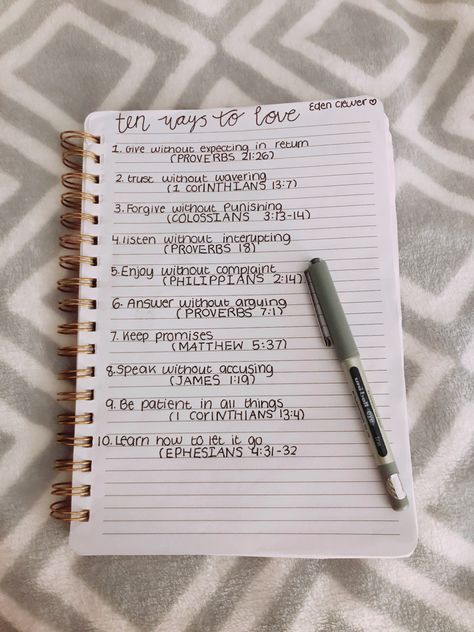 ten ways to love
Eden Clewer ♡
1. Give without expecting in return
(PROVERBS 21:26)
2. trust without wavering
(1 CORINTHIANS 13:7)
3. Forgive without punishing
(COLOSSIANS 3:13-14)
4. listen without interupting
(PROVERBS 18)
5. Enjoy without complaint
(PHILIPPIANS 2:14)
6. Answer without arguing
(PROVERBS 7:1)
7. Keep promises
(MATTHEW 5:37)
8. Speak without accusing
(JAMES 1:19)
9. Be patient in all things
(1 CORINTHIANS 13:4)
10. Learn how to let it go
(EPHESIANS 4:31-32
uni-ball eye